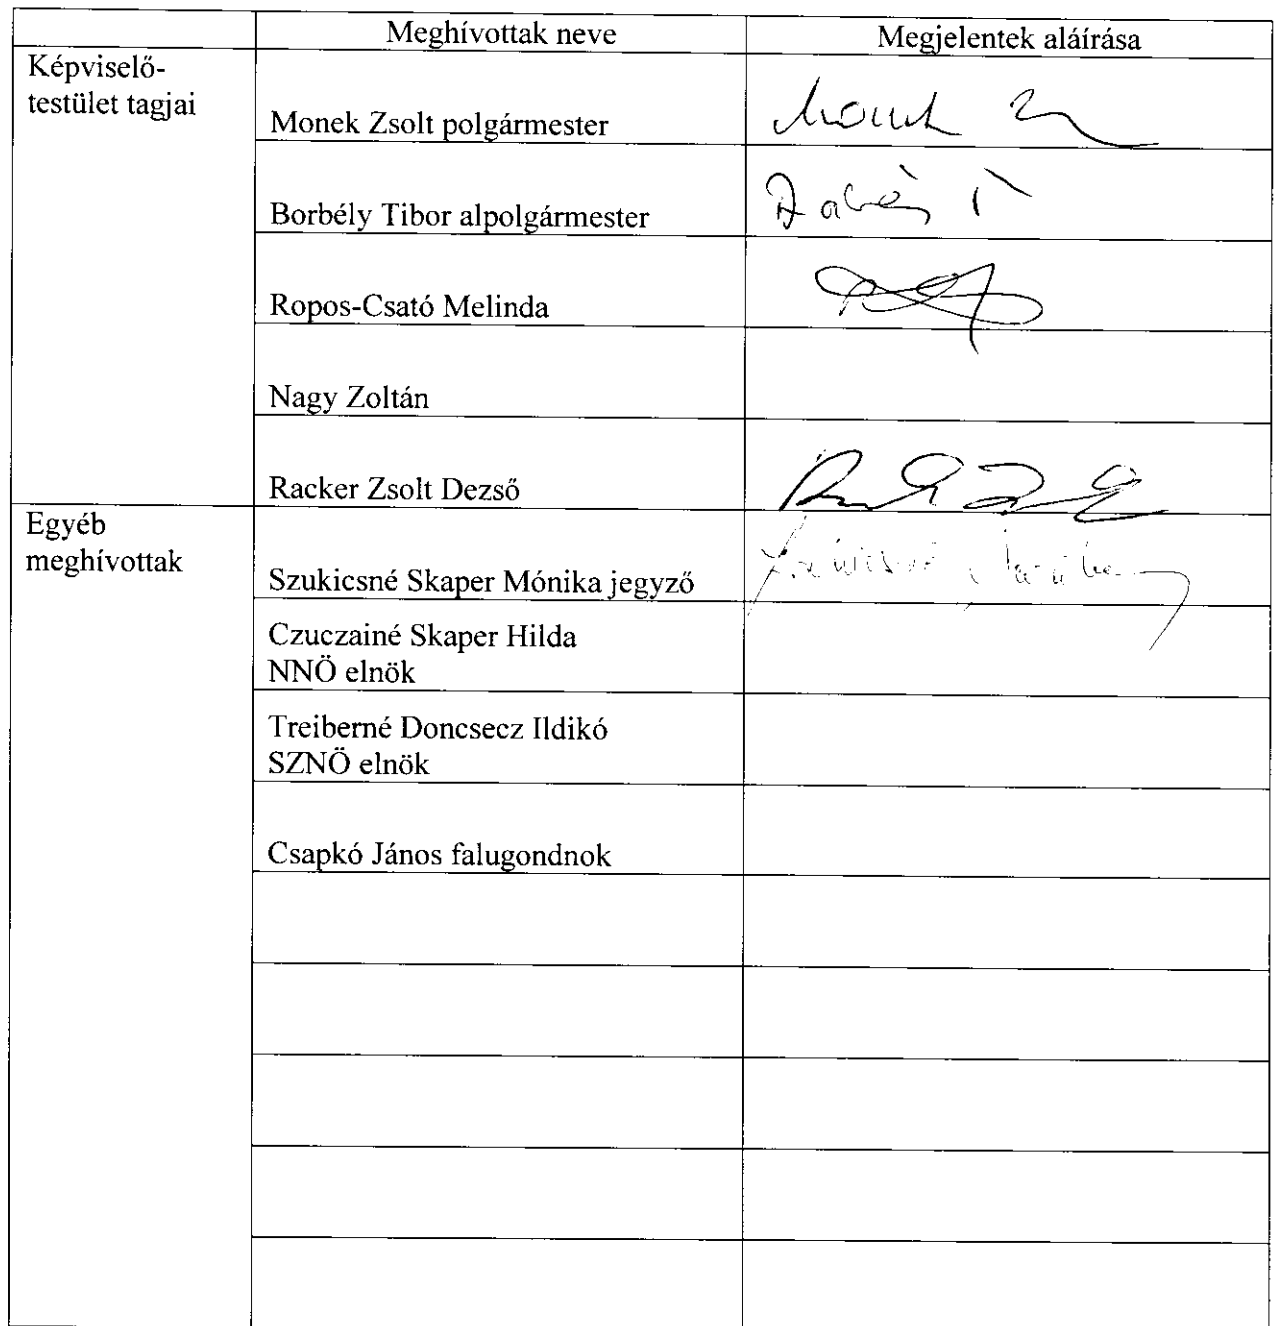 Meghívottak neve
Megjelentek aláírása
Képviselő-
testület tagjai
Monek Zsolt polgármester
Borbély Tibor alpolgármester
Ropos-Csató Melinda
Nagy Zoltán
Racker Zsolt Dezső
Egyéb
meghívottak
Szukicsné Skaper Mónika jegyző
Czuczainé Skaper Hilda
NNÖ elnök
Treiberné Doncsecz Ildikó
SZNÖ elnök
Csapkó János falugondnok